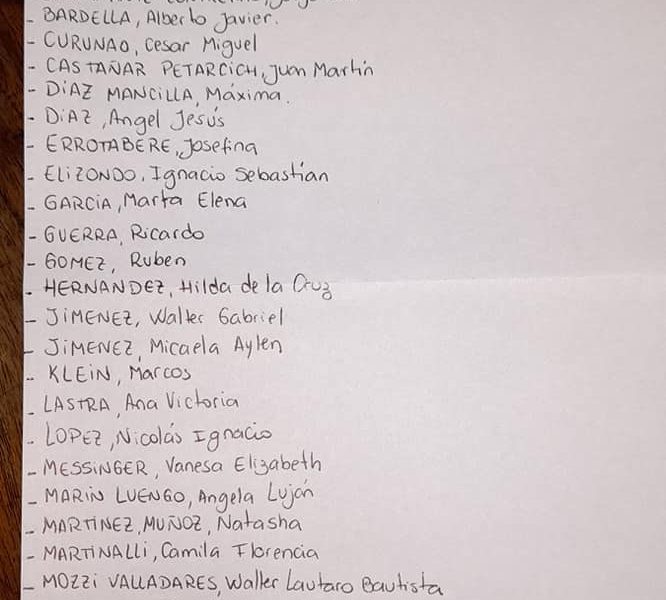 - BARDELLA, Alberto Javier.
- CURUNAO, Cesar Miguel
- CASTAÑAR PETARCICH, Juan Martín
- DíAZ MANCILLA, Máxima.
- DíAZ, Angel Jesús
- ERROTABERE, Josefina
- ELIZONDO, Ignacio Sebastian
- GARCÍA, Marta Elena
- GUERRA, Ricardo
- GOMEZ, Ruben
- HERNANDEZ, Hilda de la Cruz
- JiMENEZ, Walter Gabriel
- JiMENEZ, Micaela Aylen
- KLEiN, Marcos
- LASTRA, Ana Victoria
- LOPEZ, Nicolás Ignacio
- MESSINGER, Vanesa Elizabeth
- MARiN LUENGO, Angela Luján
- MARTíNEZ, MUÑOZ, Natasha
- MARTiNALLi, Camila Florencia
- MOZZi VALLADARES, Walter Lautaro Bautista